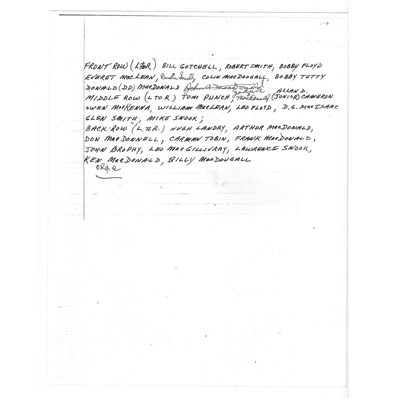 FRONT ROW (L TO R) BILL GOTCHELL, ROBERT SMITH, BOBBY FLOYD
EVERET MACLEAN, Smith, COLIN MACDOUGALL, BOBBY TUTTY
DONALD (DD) MACDONALD ALLAN D.
MIDDLE ROW (L TO R) TOM PUNCH, (JUNIOR) CAMERON
OWEN MCKENNA, WILLIAM MACLEAN, LEO FLOYD, D.G. MACISAAC
GLEN SMITH, MIKE SHOOK;
BACK ROW (L TO R.) HUGH LANDRY, ARTHUR MACDONALD,
DON MACDONNELL, CARMAN TOBIN, FRANK MACDONALD,
JOHN BROPHY, LEO MACGILLIVRAY, LAWRENCE SHOOK,
KEN MACDONALD, BILLY MACDOUGALL